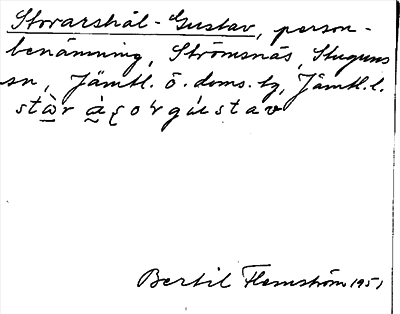 Storarshål-Gustav, person-
benämning, Strömsnäs, Stuguns
sn, Jämtl. ö. doms. tg, Jämtl. l.
Bertil Flemström 1951